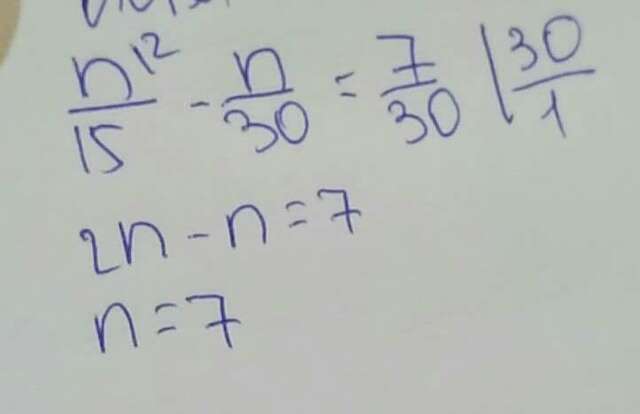 n^{12}/15 - n/30 = 7/30 | 30/1
2n - n = 7
n = 7